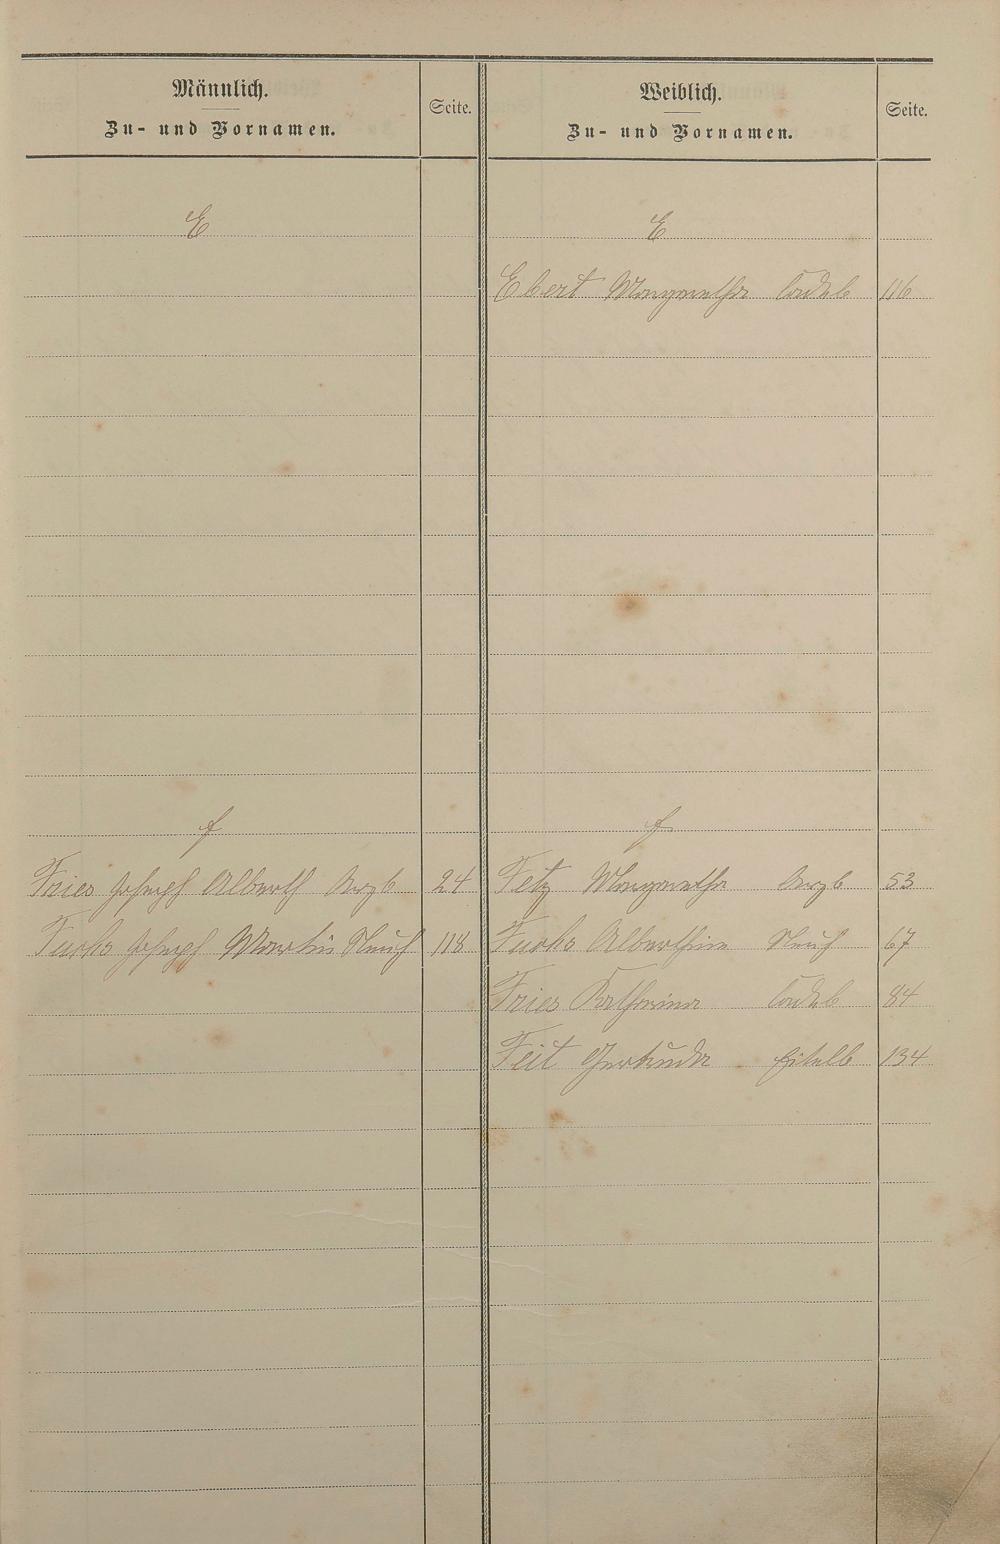 Männlich.
Zu- und Vornamen.
Seite.
Weiblich.
Zu- und Vornamen.
Seite.
E
E
Ebert Margaretha 116
f
f
Fries Joseph Alberth Arzb 24
Fetz Margaretha Arzb 53
Fuchs Joseph Martin 118
Fuchs Alberthine 67
Fries Katharina 84
Feit Gertruda Eitelb 134